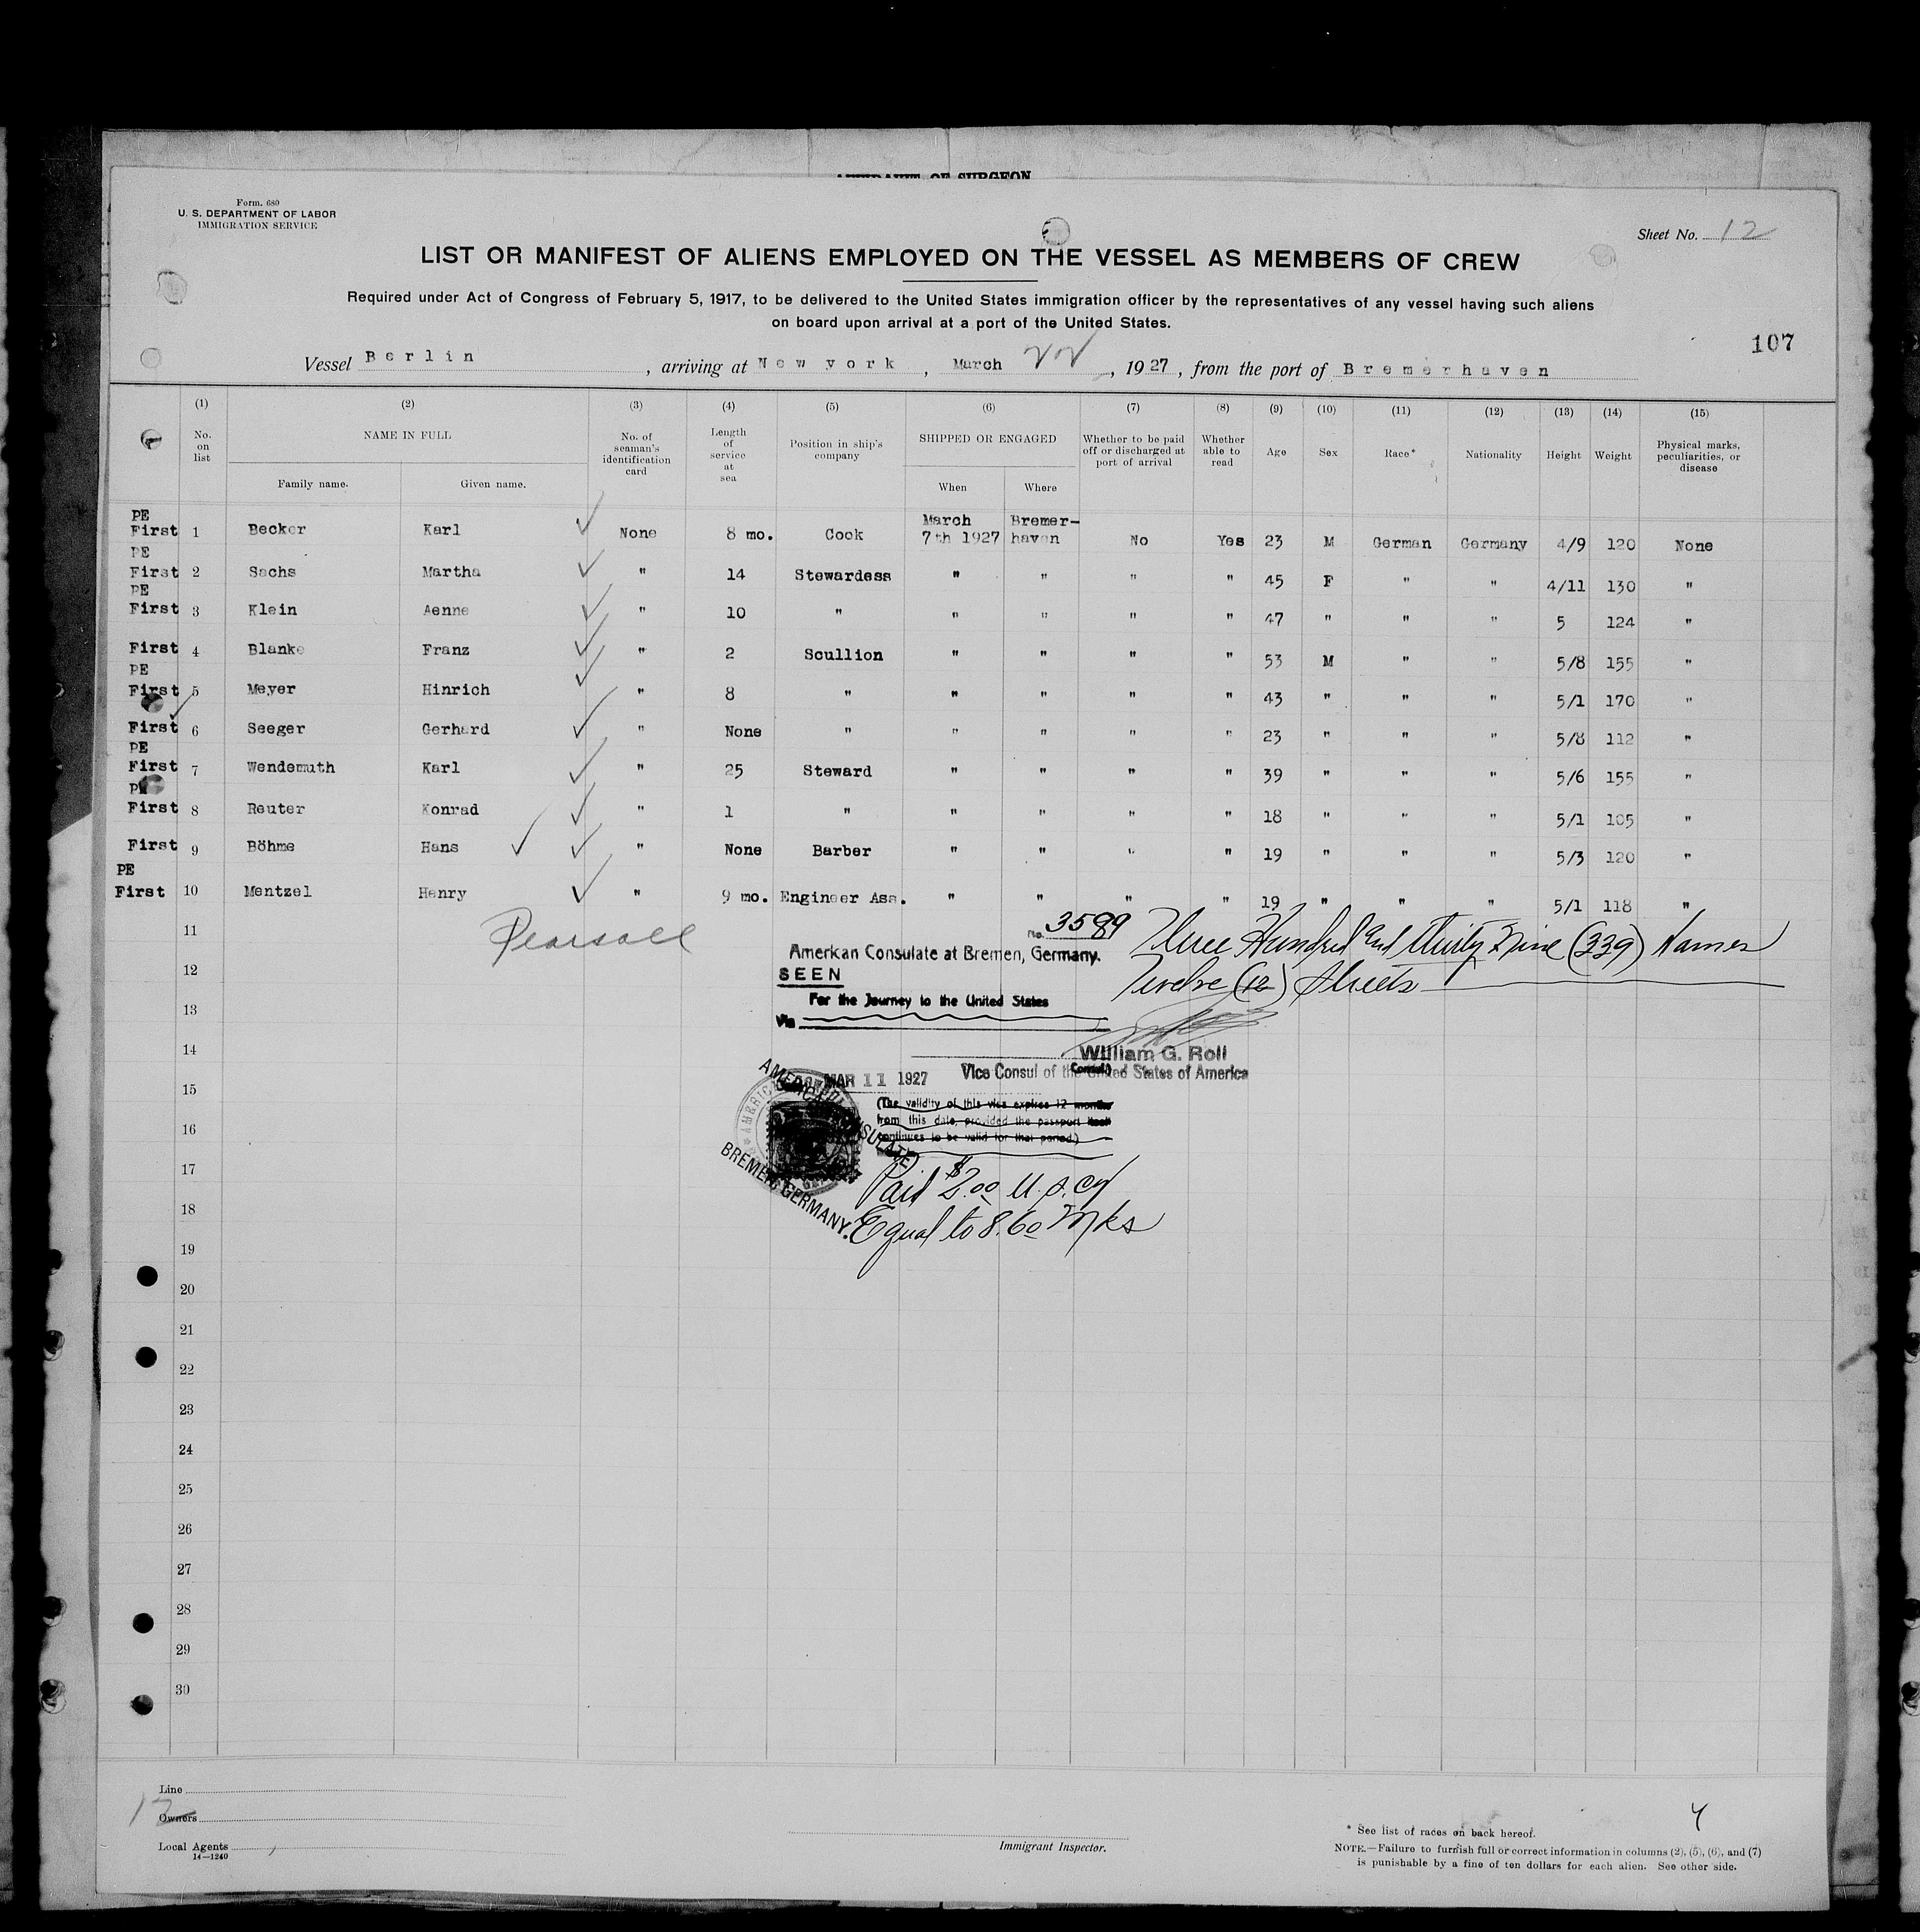 AFFIDAVIT OF SURGEON
Form. 680
U. S. DEPARTMENT OF LABOR
IMMIGRATION SERVICE
Sheet No. 12
LIST OR MANIFEST OF ALIENS EMPLOYED ON THE VESSEL AS MEMBERS OF CREW
Required under Act of Congress of February 5, 1917, to be delivered to the United States immigration officer by the representatives of any vessel having such aliens
on board upon arrival at a port of the United States.
107
Vessel Berlin, arriving at New york, March 1927, from the port of Bremerhaven
(1) (2) (3) (4) (5) (6) (7) (8) (9) (10) (11) (12) (13) (14) (15)
No. on list NAME IN FULL Family name. Given name. No. of seaman's identification card Length of service at sea Position in ship's company SHIPPED OR ENGAGED When Where Whether to be paid off or discharged at port of arrival Whether able to read Age Sex Race* Nationality Height Weight Physical marks, peculiarities, or disease
PE First 1 Becker Karl ✓ None 8 mo. Cook March 7th 1927 Bremer-haven No Yes 23 M German Germany 4/9 120 None
PE First 2 Sachs Martha ✓ " 14 Stewardess " " " " 45 F " " 4/11 130 "
PE First 3 Klein Aenne ✓ " 10 " " " " " 47 " " " 5 124 "
First 4 Blanke Franz ✓ " 2 Scullion " " " " 53 M " " 5/8 155 "
PE First 5 Meyer Hinrich ✓ " 8 " " " " " 43 " " " 5/1 170 "
First 6 Seeger Gerhard ✓ " None " " " " " 23 " " " 5/8 112 "
PE First 7 Wendemuth Karl ✓ " 25 Steward " " " " 39 " " " 5/6 155 "
PE First 8 Reuter Konrad ✓ " 1 " " " " " 18 " " " 5/1 105 "
First 9 Böhme Hans ✓ ✓ " None Barber " " " " 19 " " " 5/3 120 "
PE First 10 Mentzel Henry ✓ " 9 mo. Engineer Ass. " " " " 19 " " " 5/1 118 "
11
Pearsall
No. 3589
Three Hundred and thirty Nine (339) Names
American Consulate at Bremen, Germany.
12
SEEN
Twelve (12) Sheets
For the Journey to the United States
13
Via
14
William G. Roll
Vice Consul of the United States of America
(Consul)
15
MAR 11 1927
(The validity of this visa expires 12 months
from this date, provided the passport itself
continues to be valid for that period.)
16
AMERICAN CONSULATE
BREMEN, GERMANY.
17
Paid $2.00 U.S. cy
18
Equal to 8.60 Mks
19
20
21
22
23
24
25
26
27
28
29
30
Line
12
Owners
Local Agents
14—1240
Immigrant Inspector.
* See list of races on back hereof.
NOTE.—Failure to furnish full or correct information in columns (2), (5), (6), and (7)
is punishable by a fine of ten dollars for each alien. See other side.